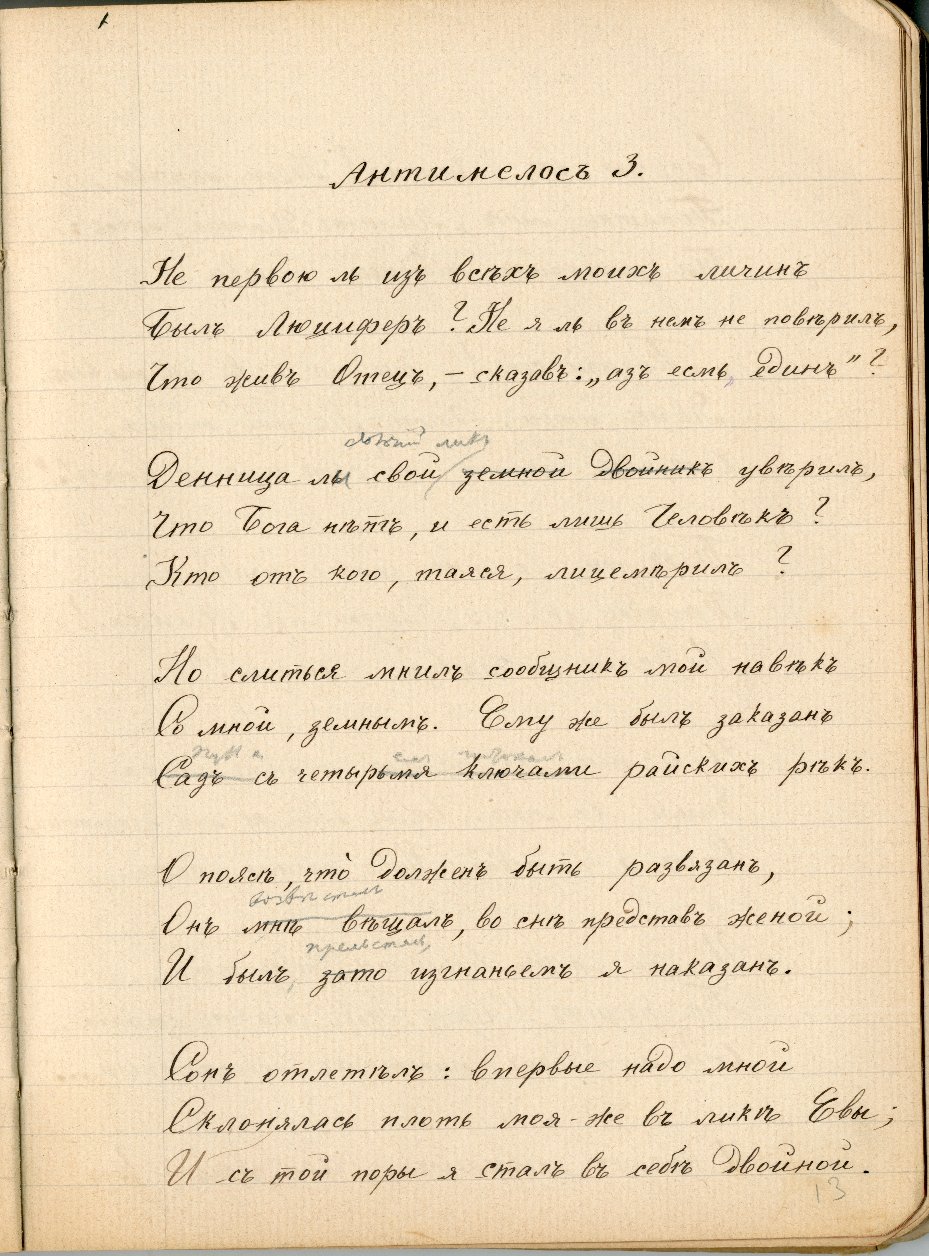 Антимелосъ 3.
Не первою ль изъ всѣхъ моихъ личинъ
Былъ Люциферъ? Не я ль въ немъ не повѣрилъ,
Что живъ Отецъ, — сказавъ: „азъ есмь, единъ"?
ликъ
Денница ль свой земной двойникъ увѣрилъ,
Что Бога нѣтъ, и есть лишь Человѣкъ?
Кто отъ кого, таяся, лицемѣрилъ?
Но слиться мнилъ сообщникъ мой навѣкъ
Со мной, земнымъ. Ему же былъ заказанъ
Садъ съ четырьмя ключами райскихъ рѣкъ.
О поясѣ, что̀ долженъ быть развязанъ,
возвѣстилъ
Онъ мнѣ вѣщалъ, во снѣ представъ женой;
прельстясь,
И былъ зато изгнаньемъ я наказанъ.
Сонъ отлетѣлъ: впервые надо мной
Склонялась плоть моя-же въ ликѣ Евы;
И съ той поры я сталъ въ себѣ двойной.
13